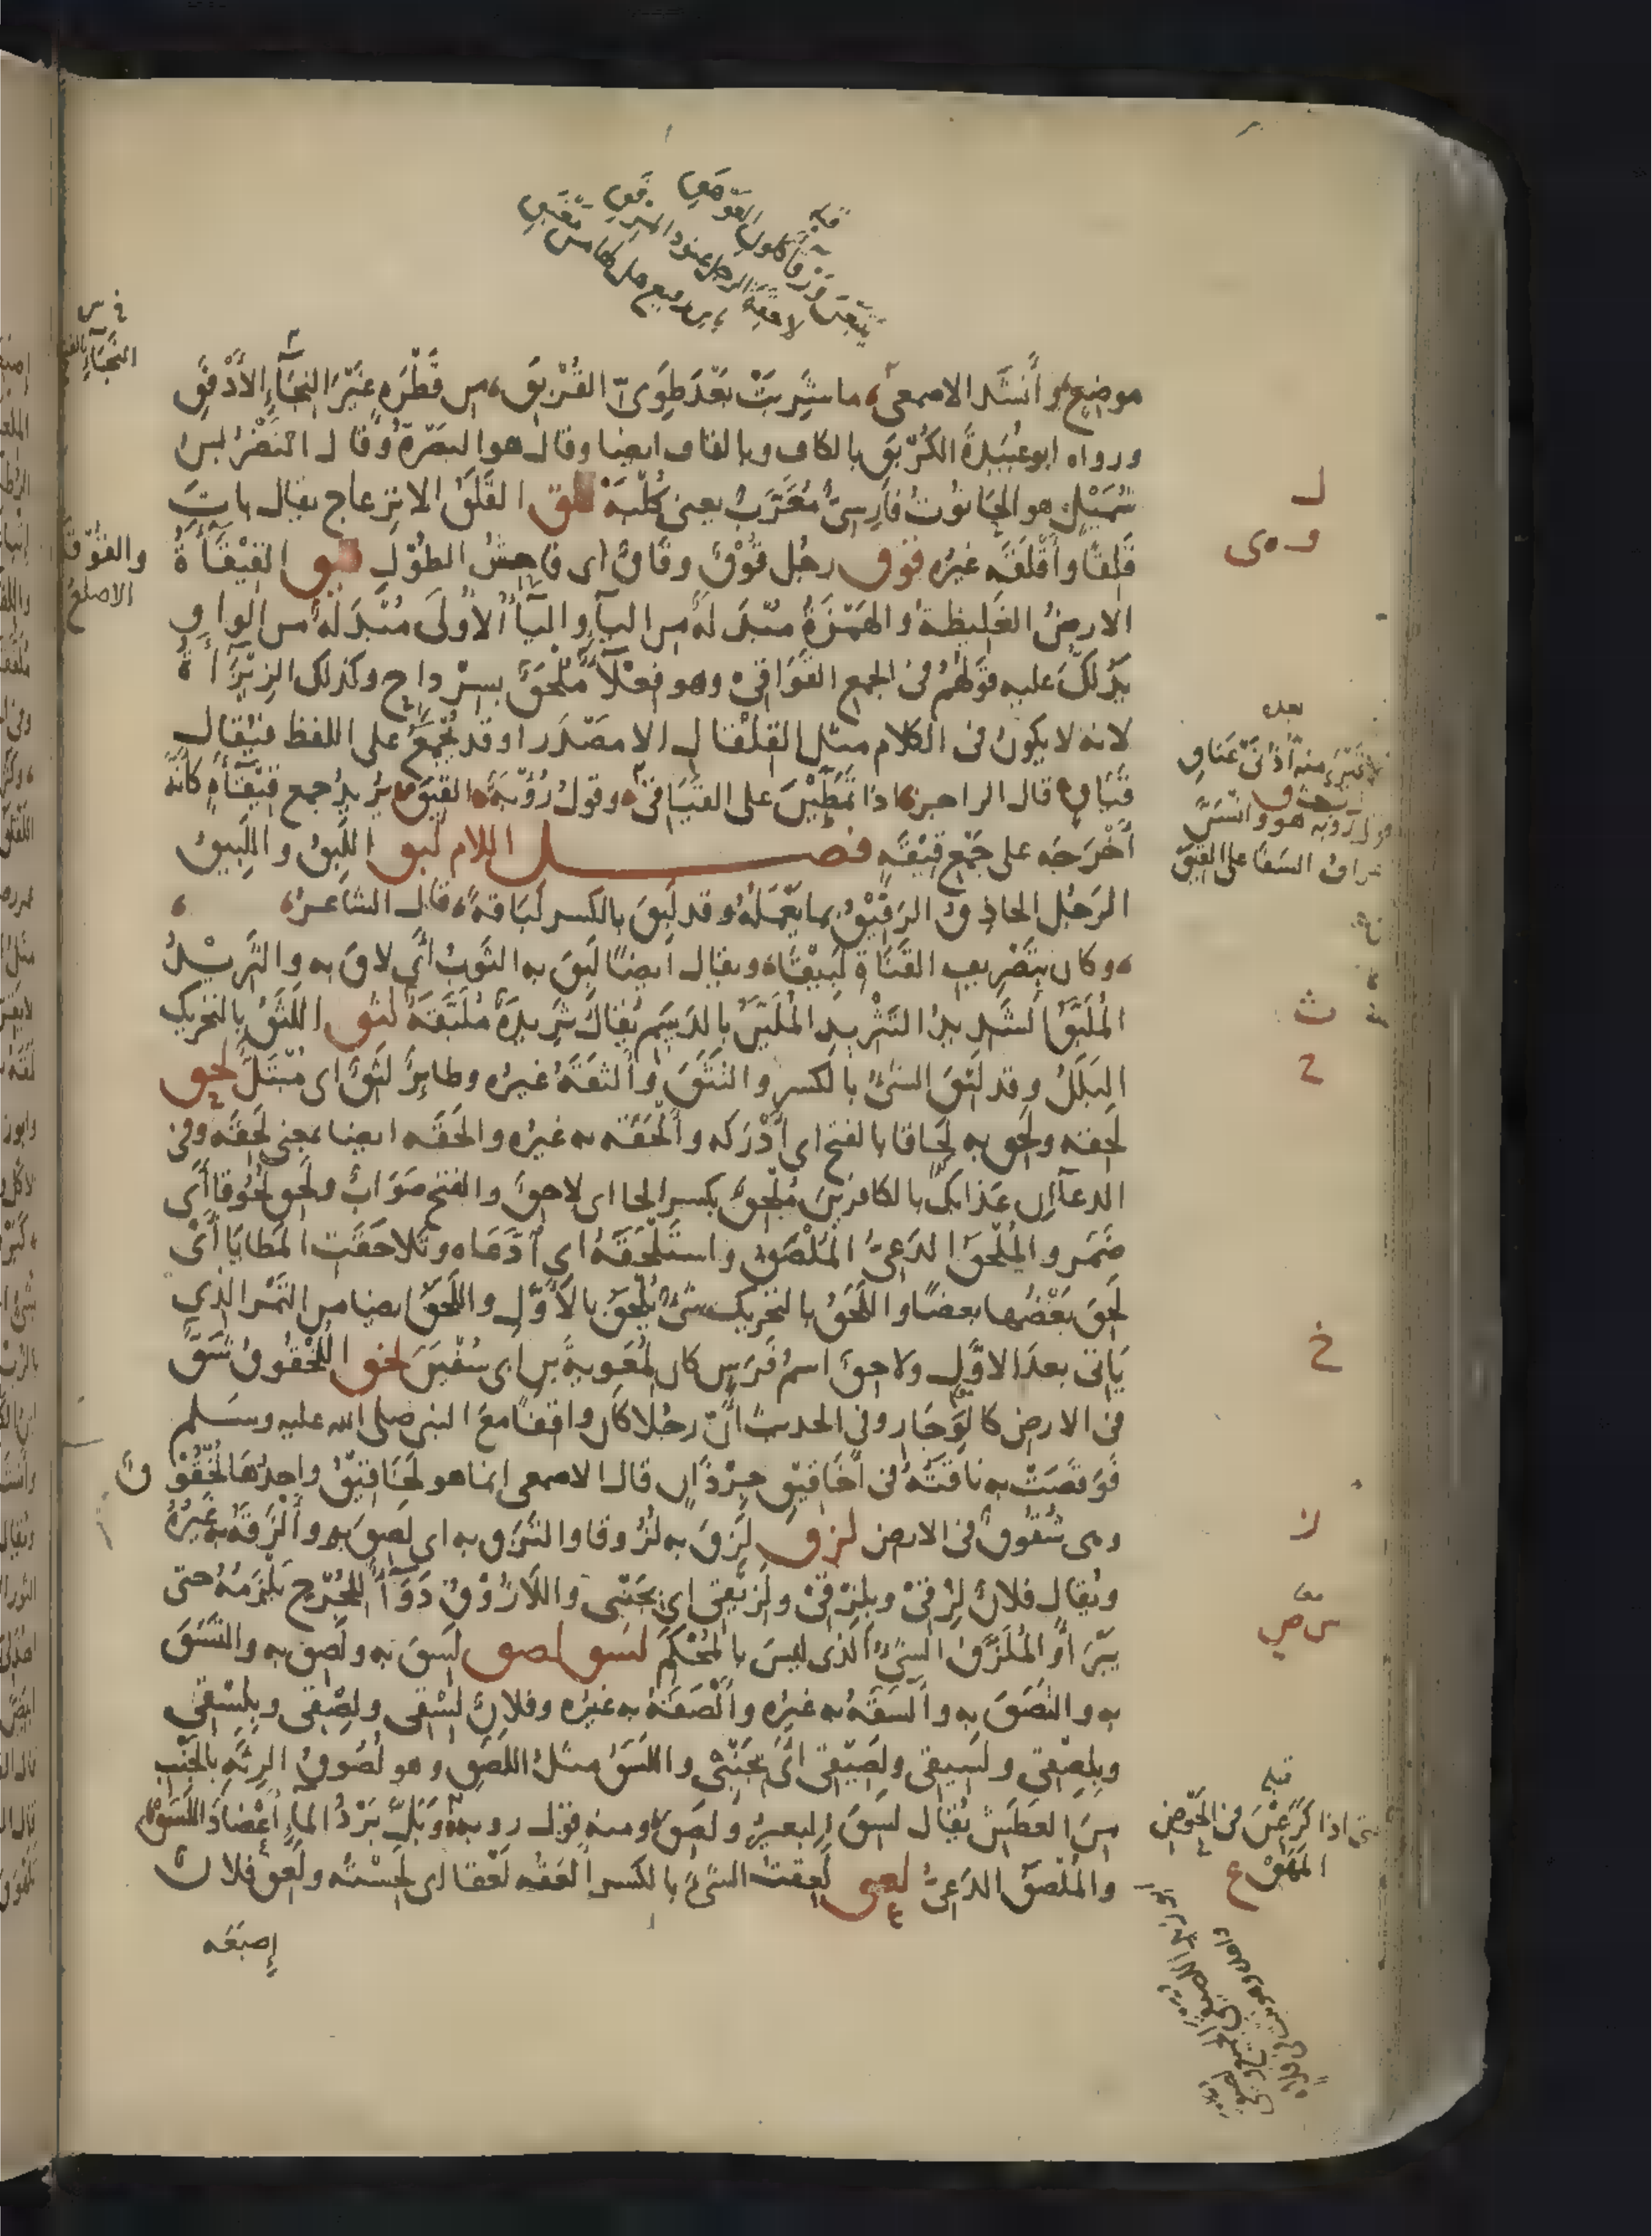 موضع وأنشد الاصمعى ما شربت بعد طوى القربق من قطرة غير النجاء الأدفق
ورواه ابو عبيدة الكربق بالكاف وبالقاف ايضا وقال هو البصرة وقال النضر بن
شميل هو الحانوت فارسى معرب يعنى كلبه قلق القلق الانزعاج يقال بات
قلقا وأقلقه غيره قوق رجل قوق وقاق اى فاحش الطول قيق القيقاءة
الارض الغليظة والهمزة مبدلة من الياء والياء الأولى مبدلة من الواو
يدلك عليه قولهم فى الجمع القواقى وهو فعلاء ملحق بسرداح وكذلك الزيزاءة
لانه لا يكون فى الكلام مثل القلقال الا مصدرا وقد تجمع على اللفظ فيقال
قياق قال الراجز اذا تمطين على القياقى وقول رؤبة القيق يريد جمع قيقاءة كانه
أخرجه على جمع قيقة فصل اللام لبق اللبق واللبيق
الرجل الحاذق الرفيق بما يعمله وقد لبق بالكسر لباقة قال الشاعر
وكان بتصريف القناة لبيقا ويقال ايضا لبق به الثوب أى لاق به والثريد
الملبق الشديد التثريد الملين بالدسم يقال ثريدة ملبقة لثق اللثق بالتحريك
البلل وقد لثق الشئ بالكسر والتثق وألثقه غيره وطائر لثق اى مبتل لحق
لحقه ولحق به لحاقا بالفتح اى أدركه وألحقه به غيره والحقه ايضا بمعنى لحقه وفى
الدعاء ان عذابك بالكافرين ملحق بكسر الحا اى لاحق والفتح صواب ولحق لحوقا أى
ضمر والملحق الدعى الملصق واستلحقه اى ادعاه وتلاحقت المطايا أى
لحق بعضها بعضا واللحق بالتحريك شئ يلحق بالأول واللحق ايضا من التمر الذى
يأتى بعد الاول ولاحق اسم فرس كان لمعوية بن ابى سفين لخق اللخقوق شق
فى الارض كالوجار وفى الحديث أن رجلا كان واقفا مع النبى صلى الله عليه وسلم
فوقصت به ناقته فى أخاقيق جرذان قال الاصمعى انما هو لخاقيق واحدها لخقوق
وهى شقوق فى الارض لزق لزق به لزوقا والتزق به اى لصق به وألزقه به غيره
ويقال فلان لزقى وبلزقى ولزيقى اى بجنبى واللازوق دواء للجرح يلزمه حتى
يبرأ والملزق الشئ الذى ليس بالمحكم لسق لصق لسق به ولصق به والتسق
به والتصق به وألسقه به غيره وألصقه به غيره وفلان لسقى ولصقى وبلسقى
وبلصقى ولسيقى ولصيقى أى بجنبى واللسق مثل اللصق وهو لصوق الرئة بالجنب
من العطش يقال لسق البعير ولصق ومنه قول رؤبة وبل برد الماء أعضاد اللسق
والملصق الدعى لعق لعقت الشئ بالكسر ألعقه لعقا اى لحسته ولعق فلان
إصبعه
والقوق
الاصلع
بعده
قبله
حتى اذا كرعن فى الحوض
المهق
ل
و ى
ث
ح
خ
ز
س ص
ع